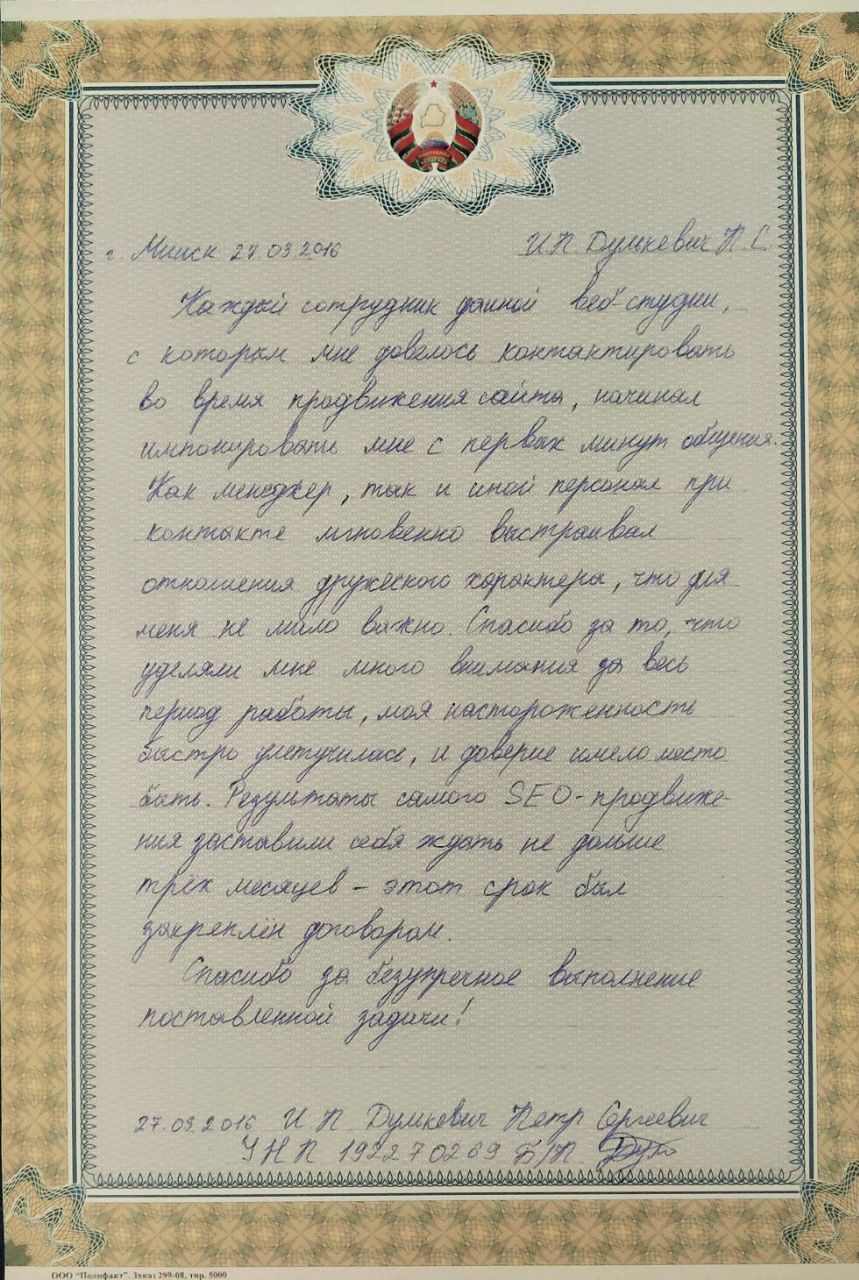 г. Минск 27.09.2016 ИП Думкевич П.С.
Каждый сотрудник данной веб-студии,
с которым мне довелось контактировать
во время продвижения сайта, начинал
импонировать мне с первых минут общения.
Как менеджер, так и иной персонал при
контакте мгновенно выстраивал
отношения дружеского характера, что для
меня не мало важно. Спасибо за то, что
уделяли мне много внимания за весь
период работы, моя настороженность
быстро улетучилась, и доверие имело место
быть. Результаты самого SEO-продвиже-
ния заставили себя ждать не дольше
трёх месяцев - этот срок был
закреплён договором.
Спасибо за безупречное выполнение
поставленной задачи!
27.09.2016 ИП Думкевич Петр Сергеевич
УНП 192270269 Б/П
ООО "Полифакт". Заказ 299-08, тир. 5000